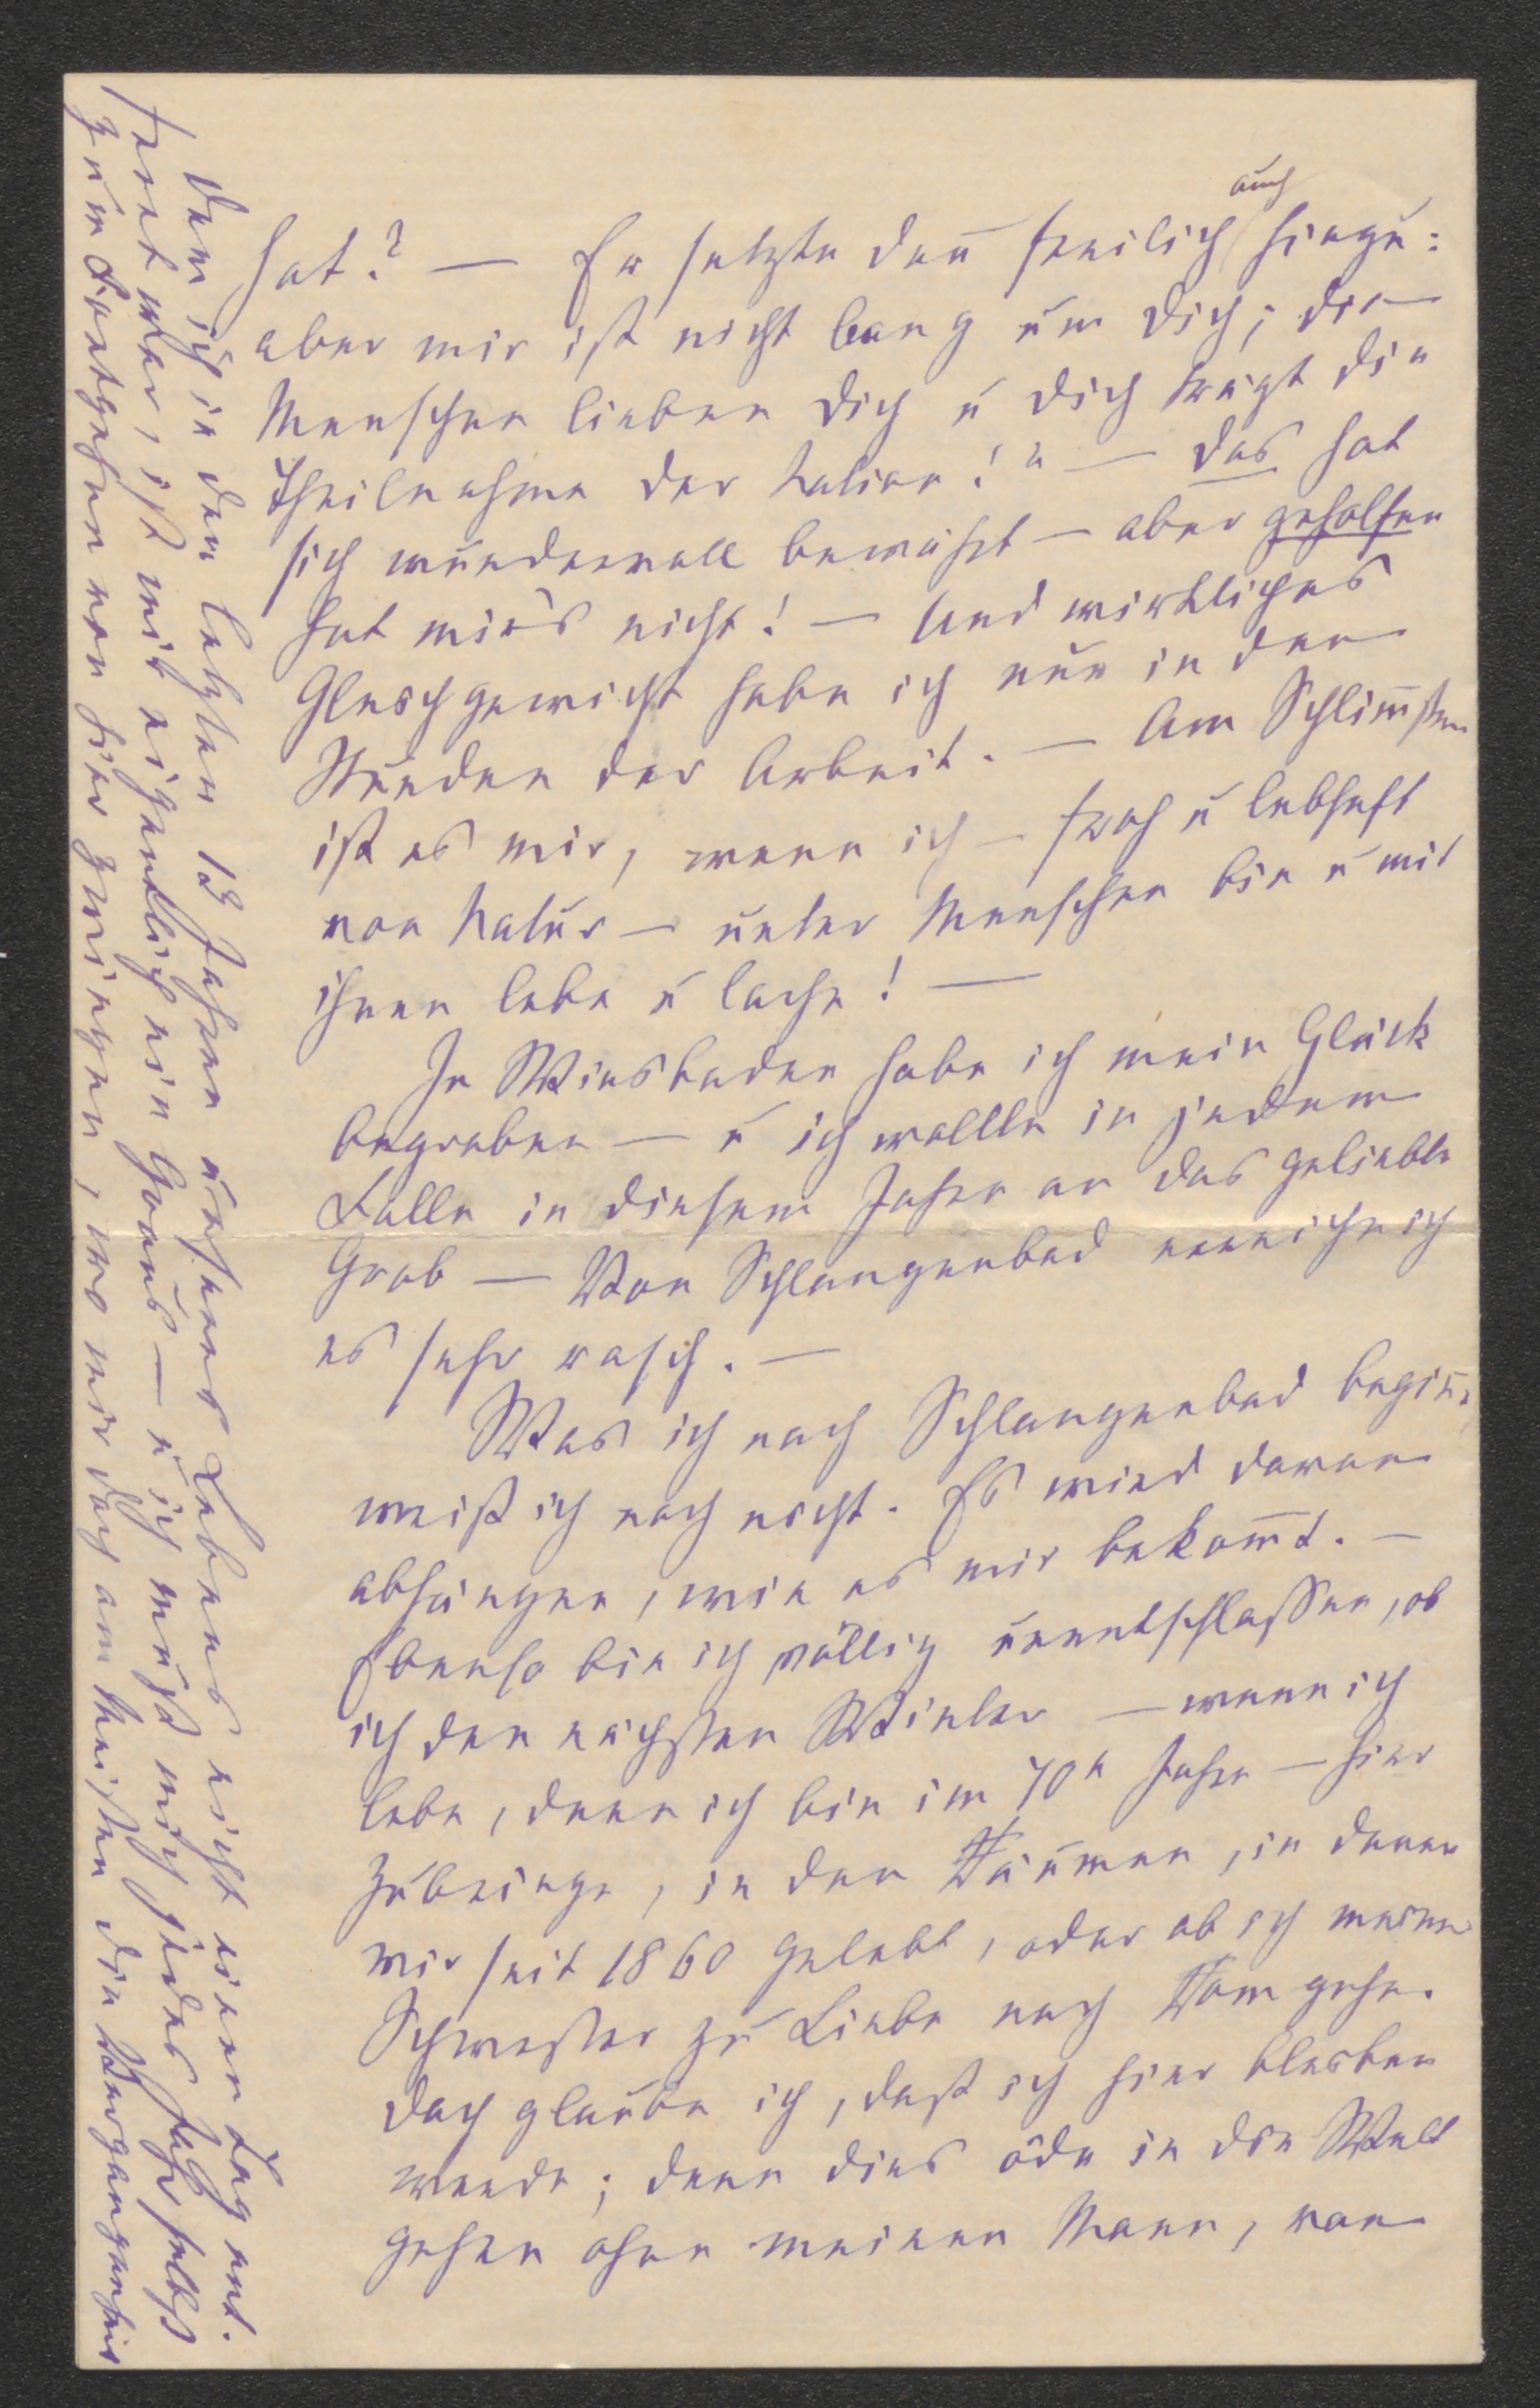 hat? — Er setzte dan̄ freilich auch hinzu:
aber mir ist nicht bang um Dich; die
Menschen lieben Dich u Dich trägt die
Theilnahme der Nation!" — das hat
sich wundervoll bewährt — aber geholfen
hat mir's nicht! — Und wirkliches
Gleichgewicht habe ich nur in den
Stunden der Arbeit. — Am Schlim̄sten
ist es mir, wenn ich — froh u lebhaft
von Natur — unter Menschen bin u mit
ihnen lebe u lache! —
In Wiesbaden habe ich mein Glück
begraben — u ich wollte in jedem
Falle in diesem Jahre an das geliebte
Grab — Von Schlangenbad erreiche ich
es sehr rasch. —
Was ich nach Schlangenbad begin̄e,
weiß ich noch nicht. Es wird davon
abhängen, wie es mir bekom̄t. —
Ebenso bin ich völlig unentschlossen, ob
ich den nächsten Winter — wenn ich
lebe, denn ich bin im 70n Jahre — hier
zubringe, in den Räumen, in denen
wir seit 1860 gelebt, oder ob ich meiner
Schwester zu Liebe nach Rom gehe.
Doch glaube ich, daß ich hier bleiben
werde; denn dies öde in die Welt
gehen ohne meinen Mann, von
dem ich in den letzten 18 Jahren unseres Lebens nicht einen Tag ent-
fernt war, ist mir eigentlich ein Graus — u ich muß mich jedes Mal selbst
zum Fortgehen von hier zwingen, wo mir doch am Meisten die Vergangenheit